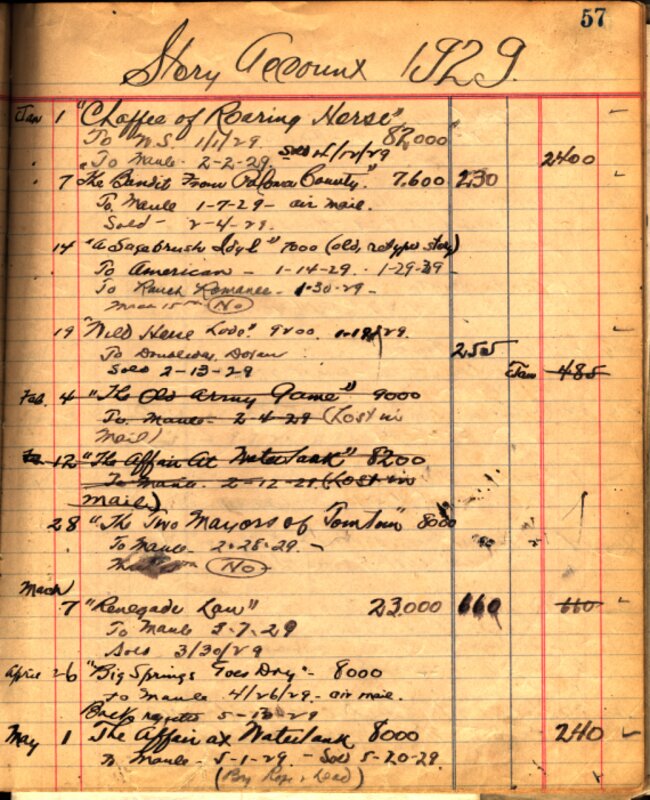 57
Story Account 1929.
Jan 1 "Chaffee of Roaring Horse"
To W.S. 1/1/29. 82,000
To Manle - 2-2-29. Sold 2400
7 The Bandit From Paloma County." 7,600 230
To Manle 1-7-29 - air mail.
Sold - 2-4-29.
14 "A Sagebrush Idyl" 7000 (old, retyped story)
To American - 1-14-29. - 1-29-29
To Ranch Romance - 1-30-29 -
No
19 "Wild Horse Love." 9200. 1-19/29.
To Doubleday Doran 255
Sold 2-13-29 Jan 485
Feb. 4 "The Old Army Game" 9000
To Manle - 2-4-29 (Lost in
Mail)
12 "The Affair At Watertank" 8200
To Manle - 2-12-29 (Lost in
Mail)
28 "The Two Mayors of Tomtom" 8000
To Manle - 2-28-29. -
No
March
7 "Renegade Law" 23,000 660 660
To Manle 3-7-29
Sold 3/30/29
April 26 "Big Springs Goes Dry" - 8000
To Manle - 4/26/29 - air mail.
Back 5-13-29
May 1 The Affair at Watertank 8000 240
To Manle - 5-1-29 - Sold 5-20-29.
(By Rope & Lead)